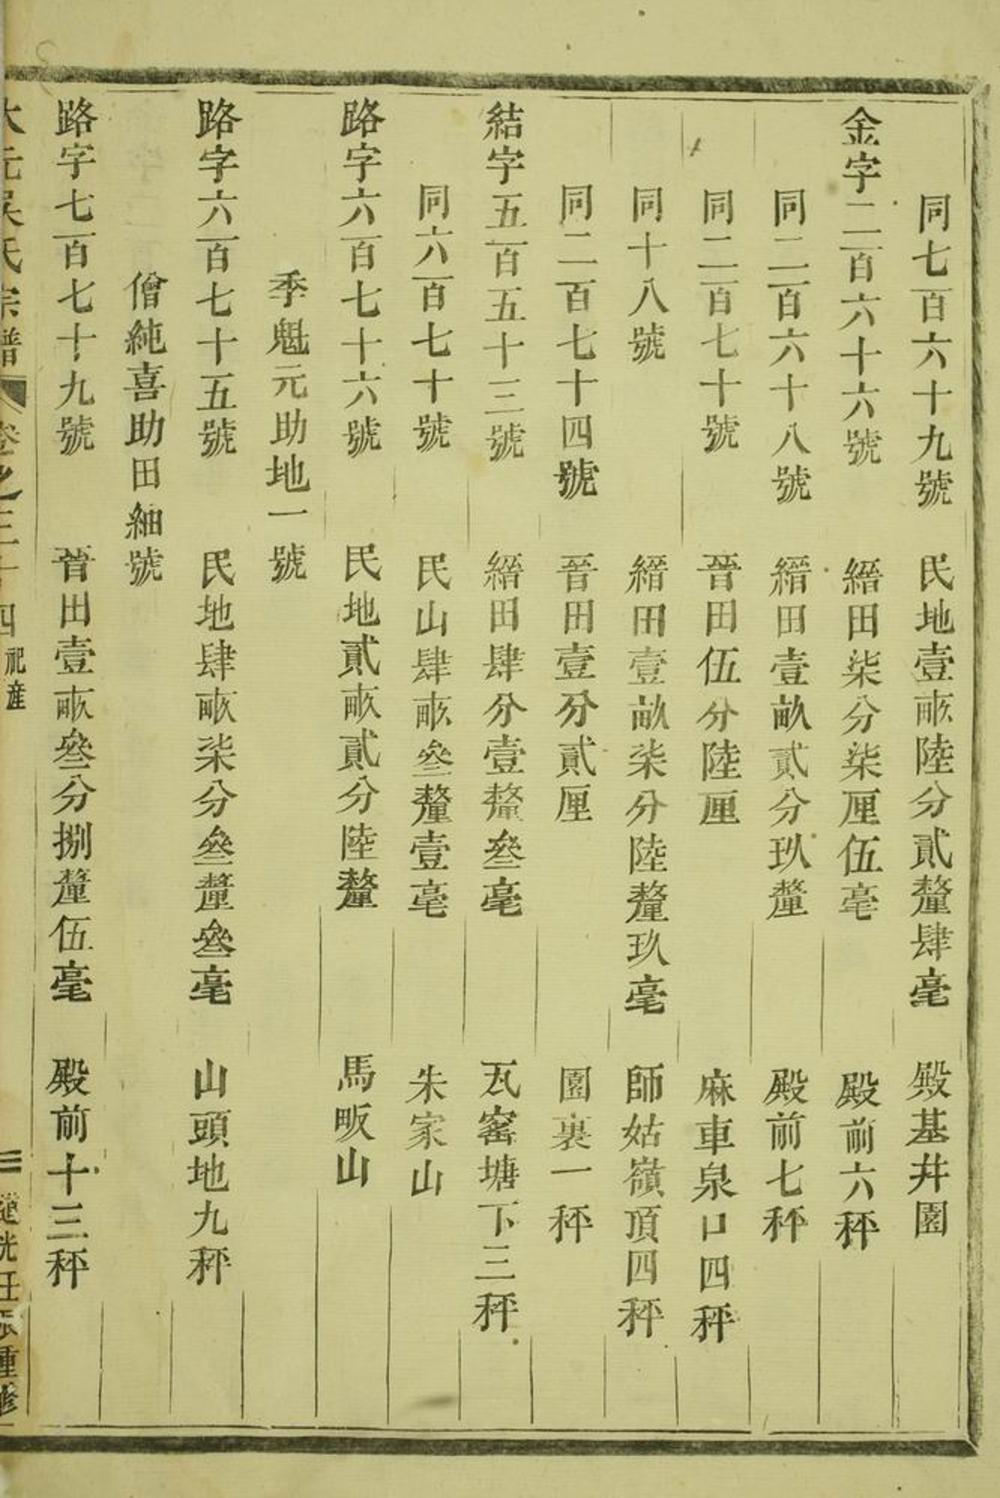 同七百六十九號　民地壹畝陸分貳釐肆毫　殿基井園
金字二百六十六號　縉田柒分柒厘伍毫　殿前六秤
同二百六十八號　縉田壹畝貳分玖釐　殿前七秤
同二百七十號　晉田伍分陸厘　麻車泉口四秤
同十八號　縉田壹畝柒分陸釐玖毫　師姑嶺頂四秤
同二百七十四號　晉田壹分貳厘　園裏一秤
結字五百五十三號　縉田肆分壹釐叄毫　瓦窰塘下三秤
同六百七十號　民山肆畝叄釐壹毫　朱家山
路字六百七十六號　民地貳畝貳分陸釐　馬畈山
季魁元助地一號
路字六百七十五號　民地肆畝柒分叄釐叄毫　山頭地九秤
僧純喜助田細號
路字七百七十九號　晉田壹畝叄分捌釐伍毫　殿前十三秤
大元吳氏宗譜　卷之三十四　祀產　三　重修